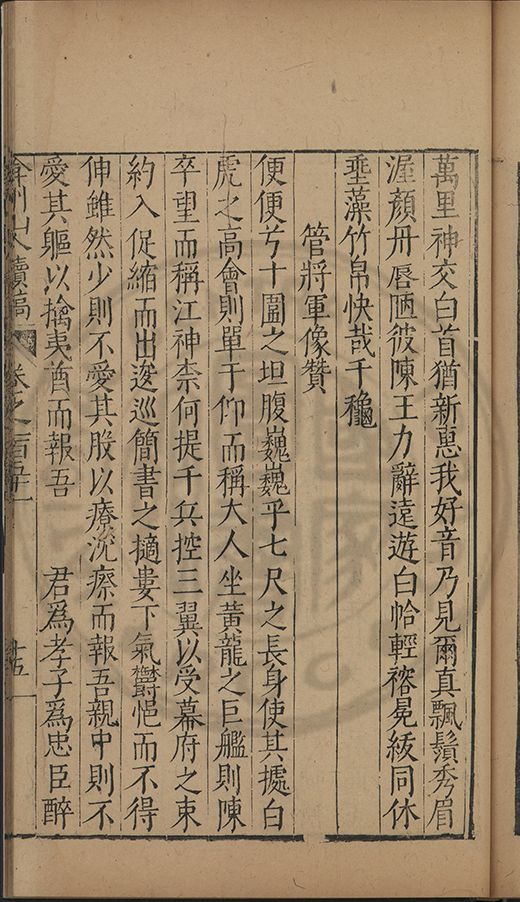 萬里神交白首猶新惠我好音乃見爾真飄鬚秀眉
渥顏丹唇陋彼陳王力辭遠遊白帢輕褣冕紱同休
埀藻竹帛快哉千穐
管將軍像贊
便便兮十圍之坦腹巍巍乎七尺之長身使其據白
虎之高會則單于仰而稱大人坐黃龍之巨艦則陳
卒望而稱江神柰何提千兵控三翼以受幕府之束
約入促縮而出逡巡簡書之擿婁下氣欝悒而不得
伸雖然少則不愛其股以療沉瘵而報吾親中則不
愛其軀以擒夷酋而報吾 君爲孝子爲忠臣醉
弇州山人續稿 卷之一百五十一 十五